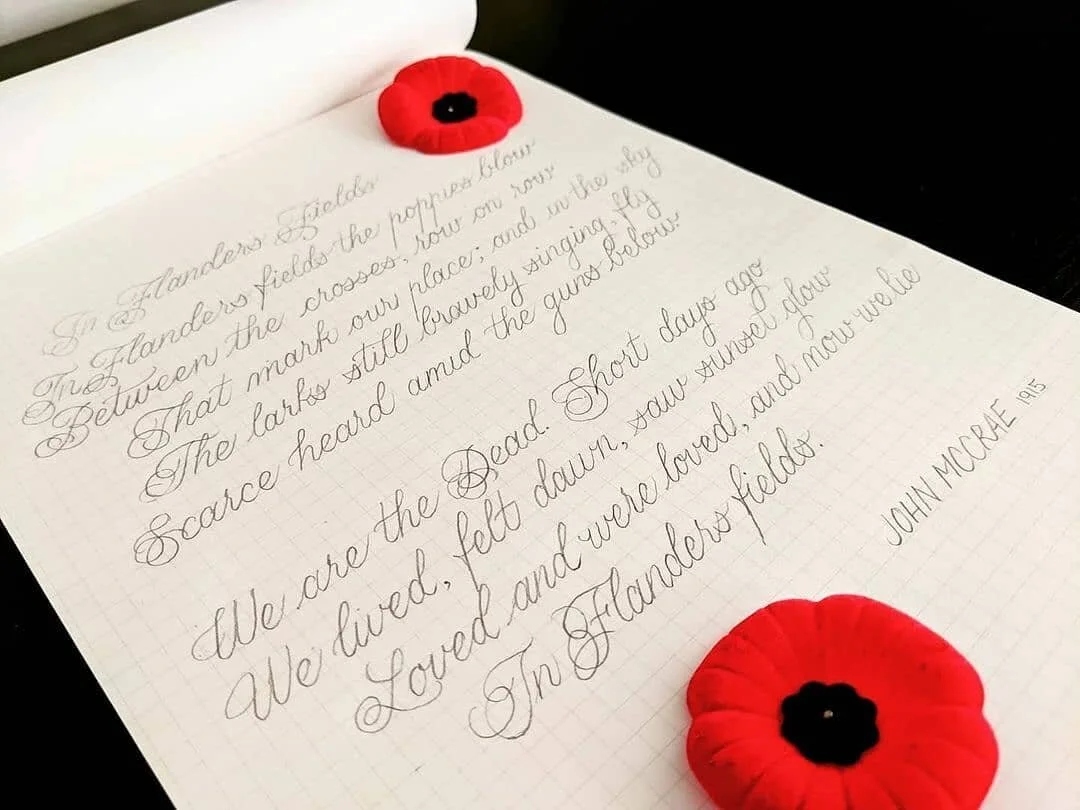 In Flanders Fields
In Flanders fields the poppies blow
Between the crosses, row on row
That mark our place; and in the sky
The larks still bravely singing, fly
Scarce heard amid the guns below.
We are the Dead. Short days ago
We lived, felt dawn, saw sunset glow
Loved and were loved, and now we lie
In Flanders fields.
JOHN MCCRAE 1915